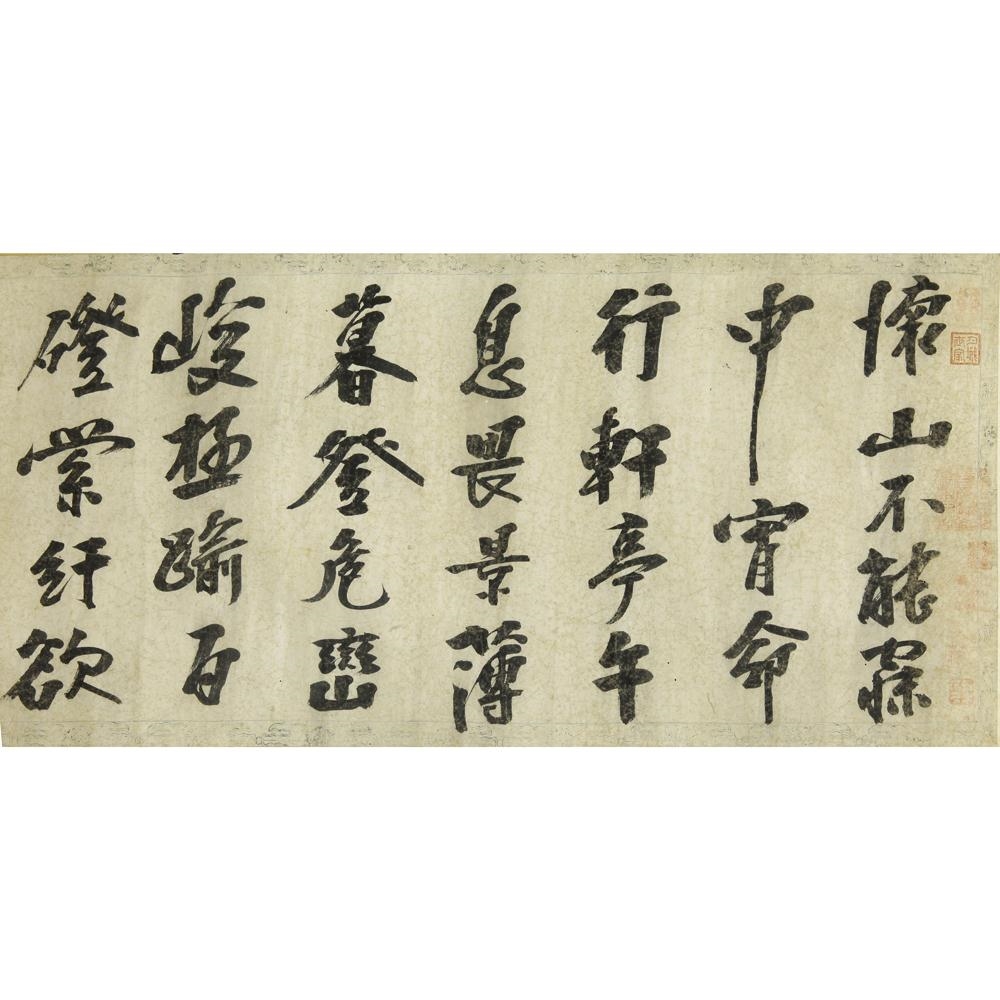 懷山不能寐
中宵命
行軒亭午
息畏景薄
暮登危巒
峻極踰百
磴縈紆欲